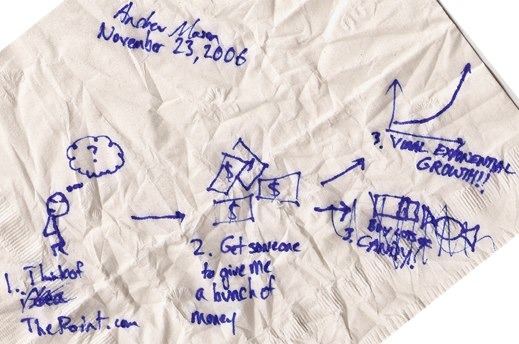 Andrew Mason
November 23, 2006
?
$
$
$
$
1. Think of
Idea
ThePoint.com
2. Get someone
to give me
a bunch of
money
3. VIRAL EXPONENTIAL
GROWTH!!
BUY LOTS OF
3. CANDY!